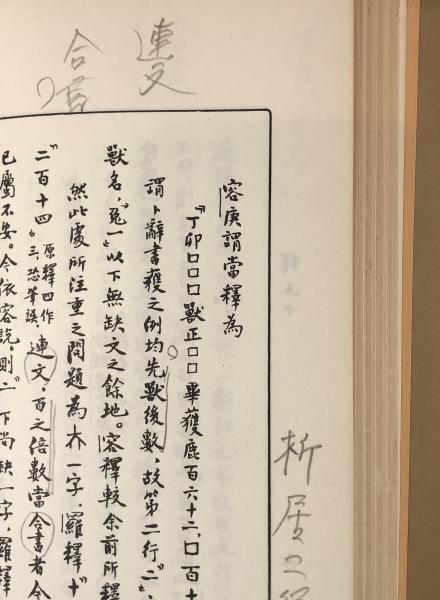 連文
合書
容庚謂當釋為
『丁卯□□□獸正□□畢獲鹿百六十二、□百十
謂卜辭書獲之例均先獸後數，故第二行『二』，
獸名，『兔一』以下無缺文之餘地。容釋較余前所釋
然此處所注重之問題為 一字，羅釋『十
『二百十四』三，恐筆誤，
原釋四作
連文，百之倍數當合書者今
已屬不安。今依容說，則『二』下尚缺一字，羅釋
析居之